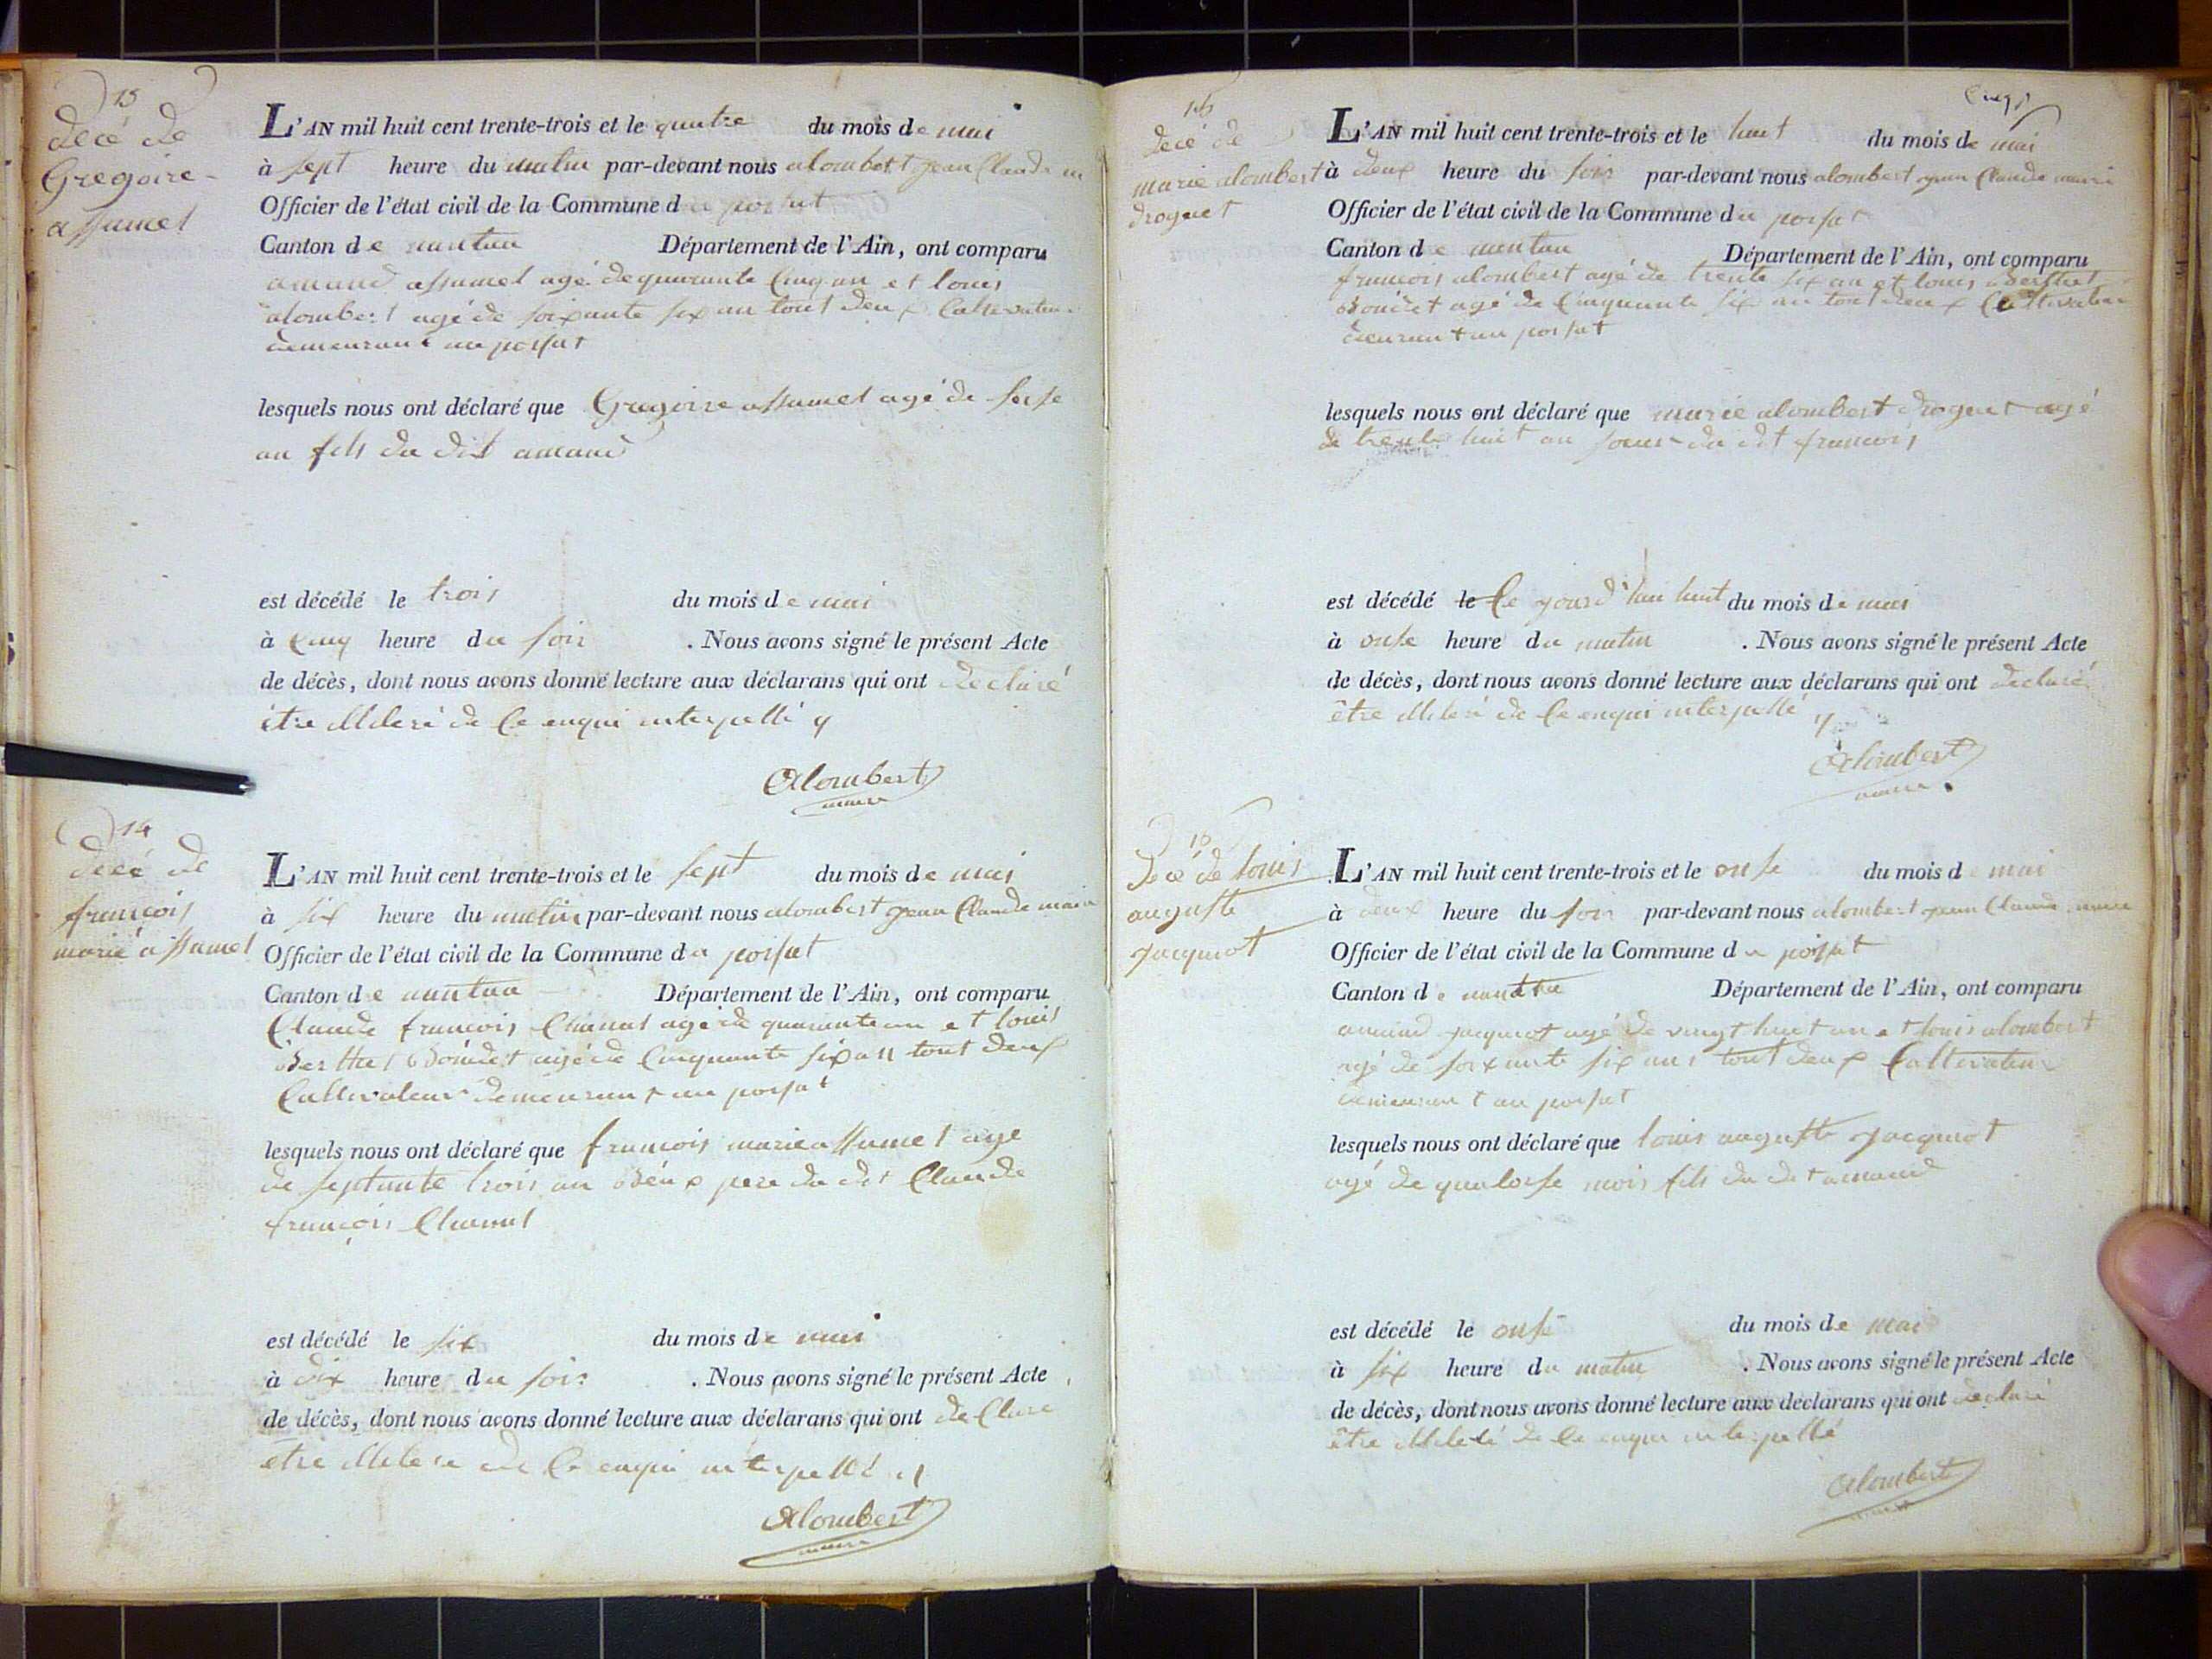 13
décé de
Gregoire
assumel
L'AN mil huit cent trente-trois et le quatre du mois de mai
à sept heure du matin par-devant nous alombert jean Claude m
Officier de l'état civil de la Commune du poisat
Canton de nantua Département de l'Ain, ont comparu
amand assumel agé de quarante Cinq an et louis
alombert agé de soixante six an tout deux Caltivateur
demeurant au poisat
lesquels nous ont déclaré que Gregoire assumel agé de seise
an fils du dit amand
est décédé le trois du mois de mai
à Cinq heure du soir . Nous avons signé le présent Acte
de décès, dont nous avons donné lecture aux déclarans qui ont declaré
être illiteré de Ce enqui interpellé
Alombert
maire
14
décé de
francois
marie assumel
L'AN mil huit cent trente-trois et le sept du mois de mai
à six heure du matin par-devant nous alombert jean Claude maire
Officier de l'état civil de la Commune du poisat
Canton de nantua Département de l'Ain, ont comparu
Claude francois Chanal agé de quarante an et louis
Berthet Boindet agé de Cinquante six an tout deux
Caltivateur demeurant au poisat
lesquels nous ont déclaré que francois marie assumel age
de septante trois an Beux pere du dit Claude
françois Chanal
est décédé le six du mois de mai
à dix heure du soir . Nous avons signé le présent Acte
de décès, dont nous avons donné lecture aux déclarans qui ont de Clare
etre illitere de Ce enqui interpellé
Alombert
maire
Cinq
décé de
marie alombert
droguet
L'AN mil huit cent trente-trois et le huit du mois de mai
à deux heure du soir par-devant nous alombert jean Claude maire
Officier de l'état civil de la Commune du poisat
Canton de nantua Département de l'Ain, ont comparu
francois alombert agé de trente six an et louis Berthet
Boindet agé de Cinquante six an tout deux Cultivateur
demeurant au poisat
lesquels nous ont déclaré que marie alombert droguet agé
de trente huit an soeur du dit francois
est décédé le Ce jourd'hui huit du mois de mai
à onse heure du matin . Nous avons signé le présent Acte
de décès, dont nous avons donné lecture aux déclarans qui ont declaré
être illiteré de Ce enqui interpellé
Alombert
maire
décé de louis
auguste
jacquiot
L'AN mil huit cent trente-trois et le onse du mois d mai
à deux heure du soir par-devant nous alombert jean Claude maire
Officier de l'état civil de la Commune du poisat
Canton de nantua Département de l'Ain, ont comparu
amand jacquiot agé de vingt huit an et louis alombert
agé de soixante six ans tout deux Caltivateur
demeurant au poisat
lesquels nous ont déclaré que louis auguste jacquiot
agé de quatorse mois fils du dit amand
est décédé le onse du mois de mai
à six heure du matin . Nous avons signé le présent Acte
de décès, dont nous avons donné lecture aux déclarans qui ont declaré
être illiteré de Ce enqui interpellé
Alombert
maire